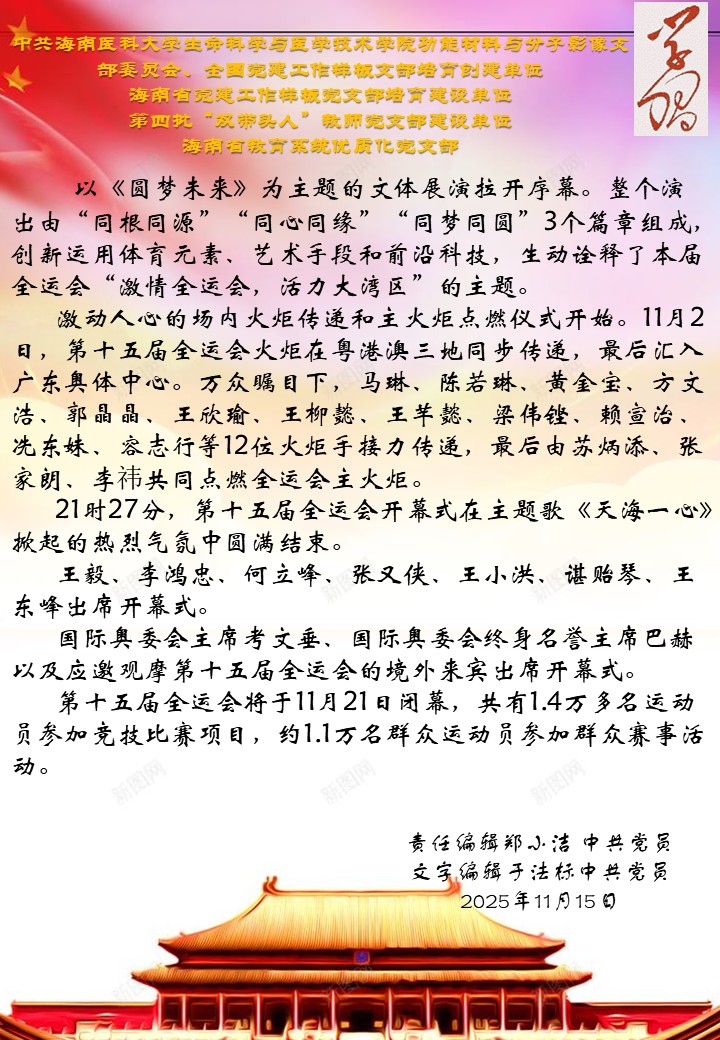 中共海南医科大学生命科学与医学技术学院功能材料与分子影像支
部委员会、全国党建工作样板支部培育创建单位
海南省党建工作样板党支部培育建设单位
第四批“双带头人”教师党支部建设单位
海南省教育系统优质化党支部
学习
以《圆梦未来》为主题的文体展演拉开序幕。整个演
出由“同根同源”“同心同缘”“同梦同圆”3个篇章组成，
创新运用体育元素、艺术手段和前沿科技，生动诠释了本届
全运会“激情全运会，活力大湾区”的主题。
激动人心的场内火炬传递和主火炬点燃仪式开始。11月2
日，第十五届全运会火炬在粤港澳三地同步传递，最后汇入
广东奥体中心。万众瞩目下，马琳、陈若琳、黄金宝、方文
浩、郭晶晶、王欣瑜、王柳懿、王芊懿、梁伟铿、赖宣治、
冼东妹、容志行等12位火炬手接力传递，最后由苏炳添、张
家朗、李祎共同点燃全运会主火炬。
21时27分，第十五届全运会开幕式在主题歌《天海一心》
掀起的热烈气氛中圆满结束。
王毅、李鸿忠、何立峰、张又侠、王小洪、谌贻琴、王
东峰出席开幕式。
国际奥委会主席考文垂、国际奥委会终身名誉主席巴赫
以及应邀观摩第十五届全运会的境外来宾出席开幕式。
第十五届全运会将于11月21日闭幕，共有1.4万多名运动
员参加竞技比赛项目，约1.1万名群众运动员参加群众赛事活
动。
责任编辑郑小洁 中共党员
文字编辑于法标中共党员
2025年11月15日
新图网
新图网
新图网
新图网
新图网
新图网